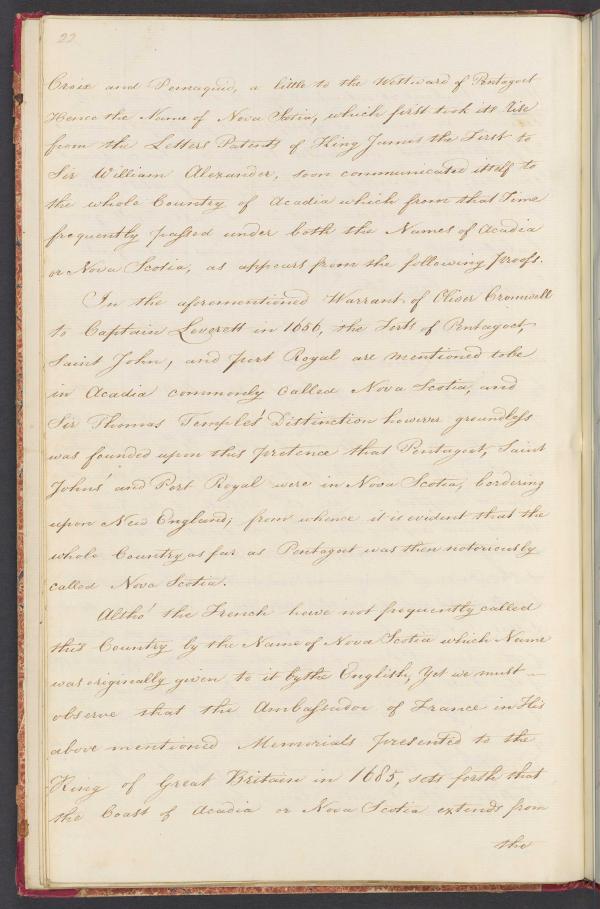 22
Croix and Pemaquid, a little to the Westward of Pentagoet
Hence the Name of Nova Scotia, which first took its Rise
from the Letters Patents of King James the First to
Sir William Alexander, soon communicated itself to
the whole Country of Acadia which from that Time
frequently passed under both the Names of Acadia
or Nova Scotia, as appears from the following Proofs.
In the aforementioned Warrant of Oliver Cromwell
to Captain Leverett in 1656, the Forts of Pentagoet,
Saint John, and port Royal are mentioned to be
in Acadia commonly called Nova Scotia, and
Sir Thomas Temples' Distinction however groundless
was founded upon this pretence that Pentagoet, Saint
Johns' and Port Royal were in Nova Scotia, bordering
upon New England; from whence it is evident that the
whole Country as far as Pentagoet was then notoriously
called Nova Scotia.
Altho' the French have not frequently called
this Country by the Name of Nova Scotia which Name
was originally given to it by the English, Yet we must
observe that the Ambassador of France in His
above mentioned Memorials presented to the
King of Great Britain in 1685, sets forth that
the Coast of Acadia or Nova Scotia extends from
the